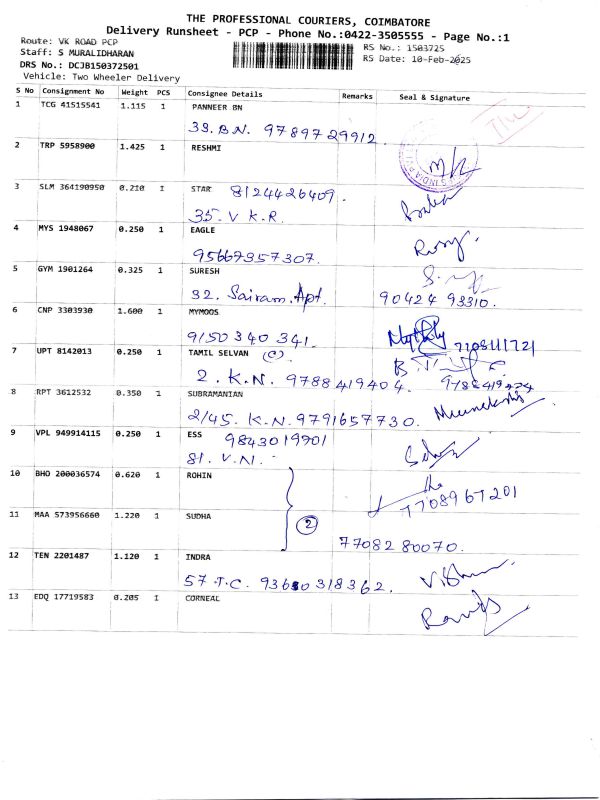 THE PROFESSIONAL COURIERS, COIMBATORE
Delivery Runsheet - PCP - Phone No.:0422-3505555 - Page No.:1
Route: VK ROAD PCP
RS No.: 1503725
Staff: S MURALIDHARAN
RS Date: 10-Feb-2025
DRS No.: DCJB150372501
Vehicle: Two Wheeler Delivery
S No Consignment No Weight PCS Consignee Details Remarks Seal & Signature
1 TCG 41515541 1.115 1 PANNEER BN
33. B.N. 97897 29912
2 TRP 5958900 1.425 1 RESHMI
3 SLM 364190950 0.210 1 STAR 8124426409.
35. V K.R.
4 MYS 1948067 0.250 1 EAGLE
95667357307.
5 GYM 1901264 0.325 1 SURESH
32. Sairam. Apt. 90424 93310.
6 CNP 3303930 1.600 1 MYMOOS
9150 340 341. 7708111721
7 UPT 8142013 0.250 1 TAMIL SELVAN (C)
2. K.N. 9788419404. 9788419404
8 RPT 3612532 0.350 1 SUBRAMANIAN
2/45. K.N. 9791657730. Meenakshi
9 VPL 949914115 0.250 1 ESS 9843019901
81. V.N.
10 BHO 200036574 0.620 1 ROHIN
7708967201
11 MAA 573956660 1.220 1 SUDHA 2
7708280070.
12 TEN 2201487 1.120 1 INDRA
57.T.C. 93630318362.
13 EDQ 17719583 0.205 1 CORNEAL